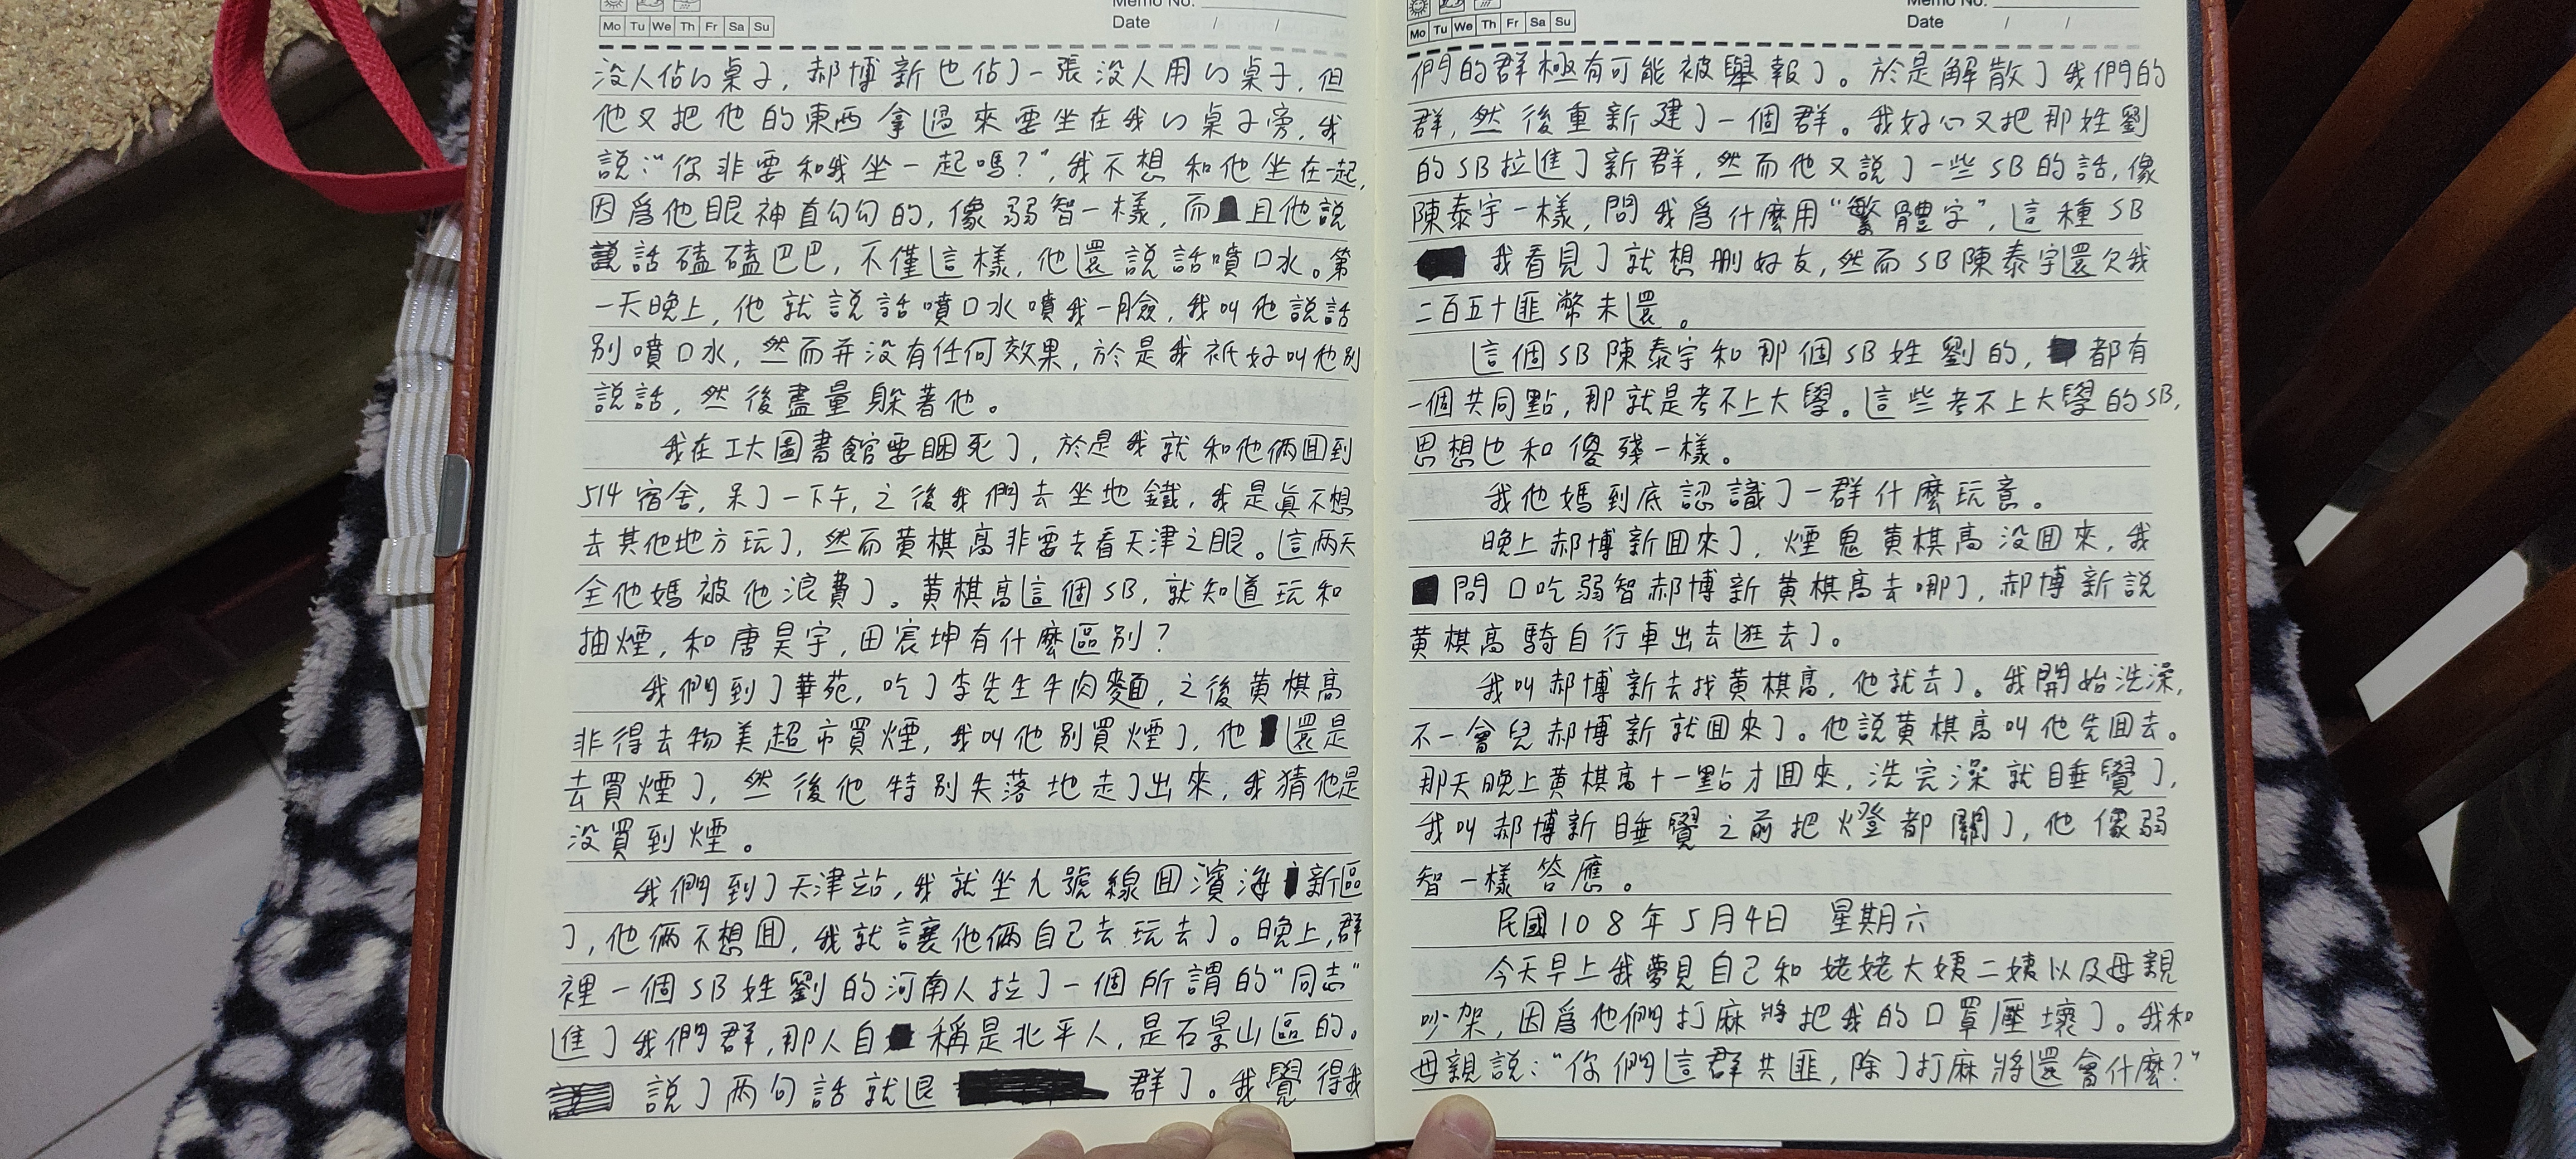 Memo No.
Mo Tu We Th Fr Sa Su
Date / /
没人佔的桌子，郝博新也佔了一張没人用的桌子，但
他又把他的東西拿過來要坐在我的桌子旁，我
説：“你非要和我坐一起嗎？”，我不想和他坐在一起，
因爲他眼神直勾勾的，像弱智一樣，而且他説
説話磕磕巴巴，不僅這樣，他還説話噴口水。第
一天晚上，他就説話噴口水噴我一臉，我叫他説話
别噴口水，然而并没有任何效果，於是我衹好叫他别
説話，然後盡量躲著他。
我在工大圖書館要睏死了，於是我就和他倆囬到
514宿舍，呆了一下午，之後我們去坐地鐵，我是真不想
去其他地方玩了，然而黄棋高非要去看天津之眼。這兩天
全他媽被他浪費了。黄棋高這個SB，就知道玩和
抽煙，和唐昊宇，田宸坤有什麽區别？
我們到了華苑，吃了李先生牛肉麵，之後黄棋高
非得去物美超市買煙，我叫他别買煙了，他還是
去買煙了，然後他特别失落地走了出來，我猜他是
没買到煙。
我們到了天津站，我就坐九號線囬濱海新區
了，他倆不想囬，我就讓他倆自己去玩去了。晚上，群
裡一個SB姓劉的河南人拉了一個所謂的“同志”
進了我們群，那人自稱是北平人，是石景山區的。
説了两句話就退群了。我覺得我
Memo No.
Mo Tu We Th Fr Sa Su
Date / /
們的群極有可能被舉報了。於是解散了我們的
群，然後重新建了一個群。我好心又把那姓劉
的SB拉進了新群，然而他又説了一些SB的話，像
陳泰宇一樣，問我爲什麽用“繁體字”，這種SB
我看見了就想刪好友，然而SB陳泰宇還欠我
二百五十匪幣未還。
這個SB陳泰宇和那個SB姓劉的，都有
一個共同點，那就是考不上大學。這些考不上大學的SB，
思想也和傻殘一樣。
我他媽到底認識了一群什麽玩意。
晚上郝博新囬來了，煙鬼黄棋高没囬來，我
問口吃弱智郝博新黄棋高去哪了，郝博新説
黄棋高騎自行車出去逛去了。
我叫郝博新去找黄棋高，他就去了。我開始洗澡，
不一會兒郝博新就囬來了。他説黄棋高叫他先囬去。
那天晚上黄棋高十一點才囬來，洗完澡就睡覺了，
我叫郝博新睡覺之前把燈都關了，他像弱
智一樣答應。
民國108年5月4日 星期六
今天早上我夢見自己和姥姥大姨二姨以及母親
吵架，因爲他們打麻將把我的口罩壓壞了。我和
母親説：“你們這群共匪，除了打麻將還會什麽？”